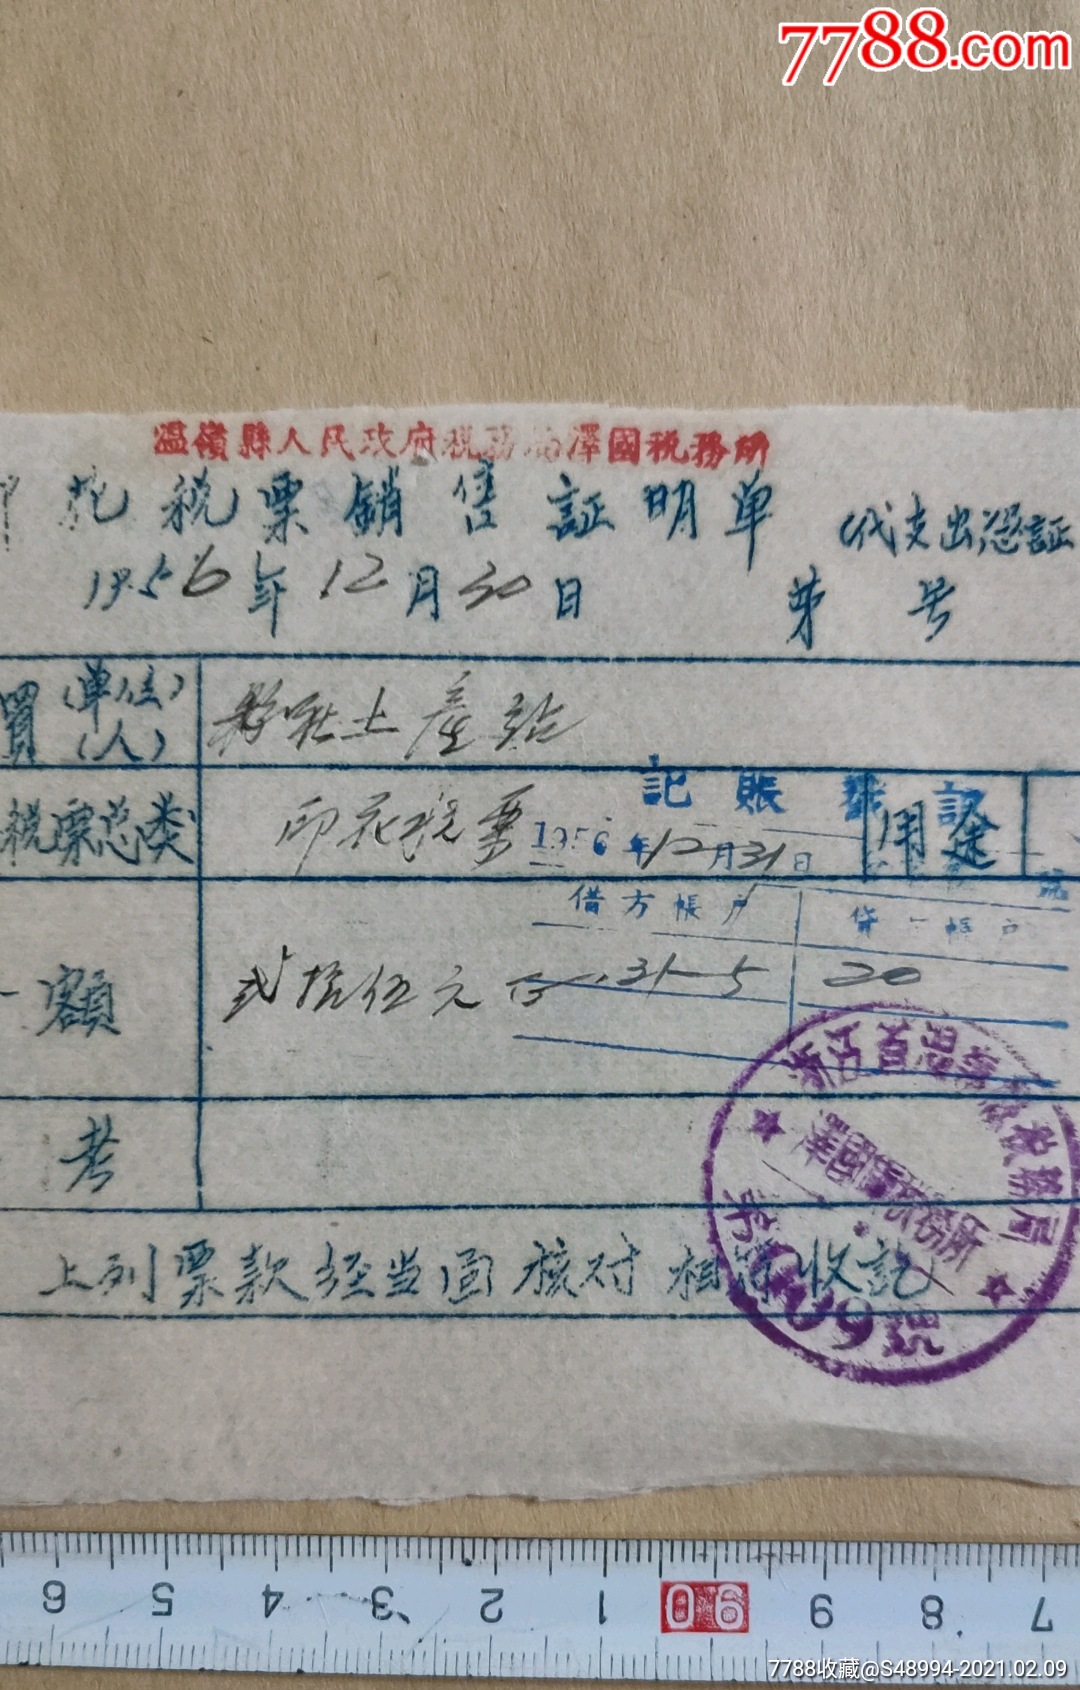 7788.com
温嶺縣人民政府税務局澤國税務所
印花税票銷售証明单 (代支出憑証
1956年12月30日 第 号
買(单位)
(人)
縣社土產站
税票总类
印花税票
用途
記賬
1956年12月31日
借方帳户
貸方帳户
31-5
20
額
弍拾伍元
考
澤國税務所
税務局
09號
上列票款经当面核对相符收訖
6 5 4 3 2 1 90 9 8 7
7788收藏@S48994-2021.02.09